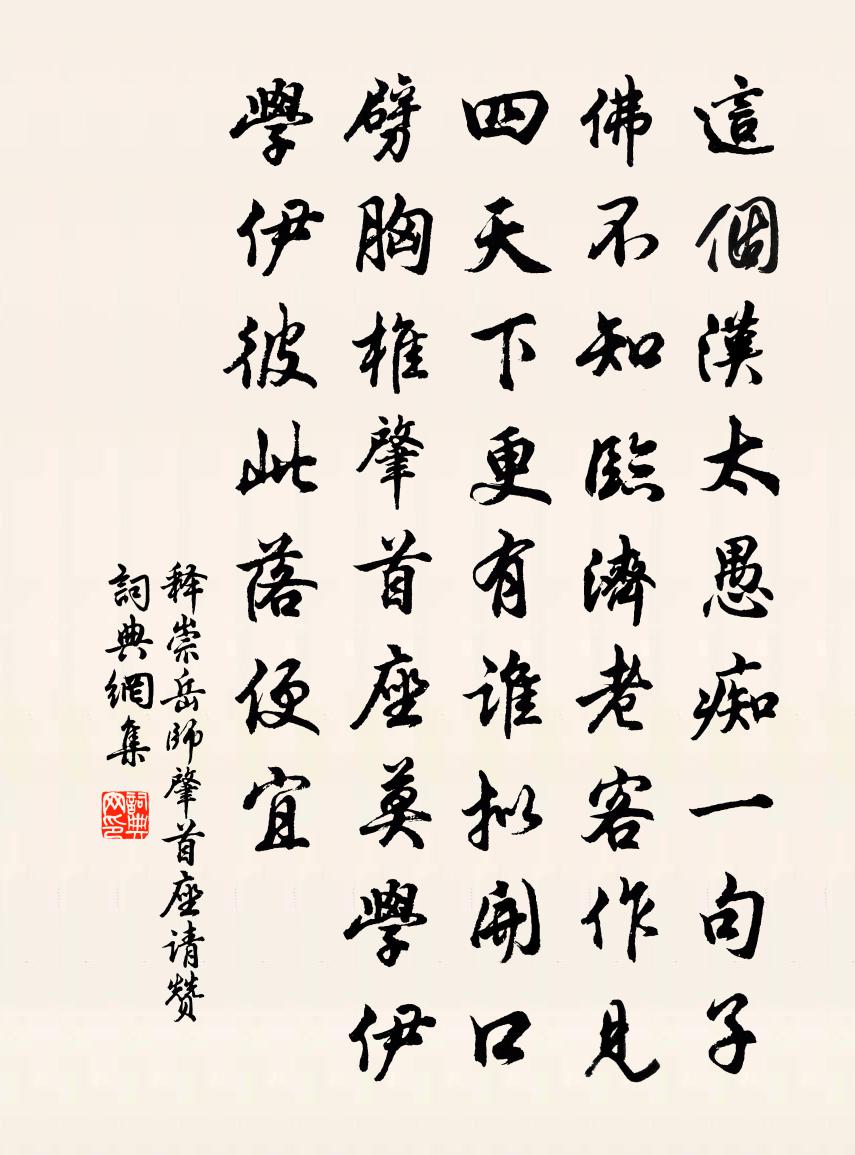 這個漢太愚痴一句子
佛不知臨濟老客作見
四天下更有誰拟開口
劈胸椎肇首座莫學伊
學伊彼此落便宜
释崇岳師肇首座请赞
詞典網集
詞典网印